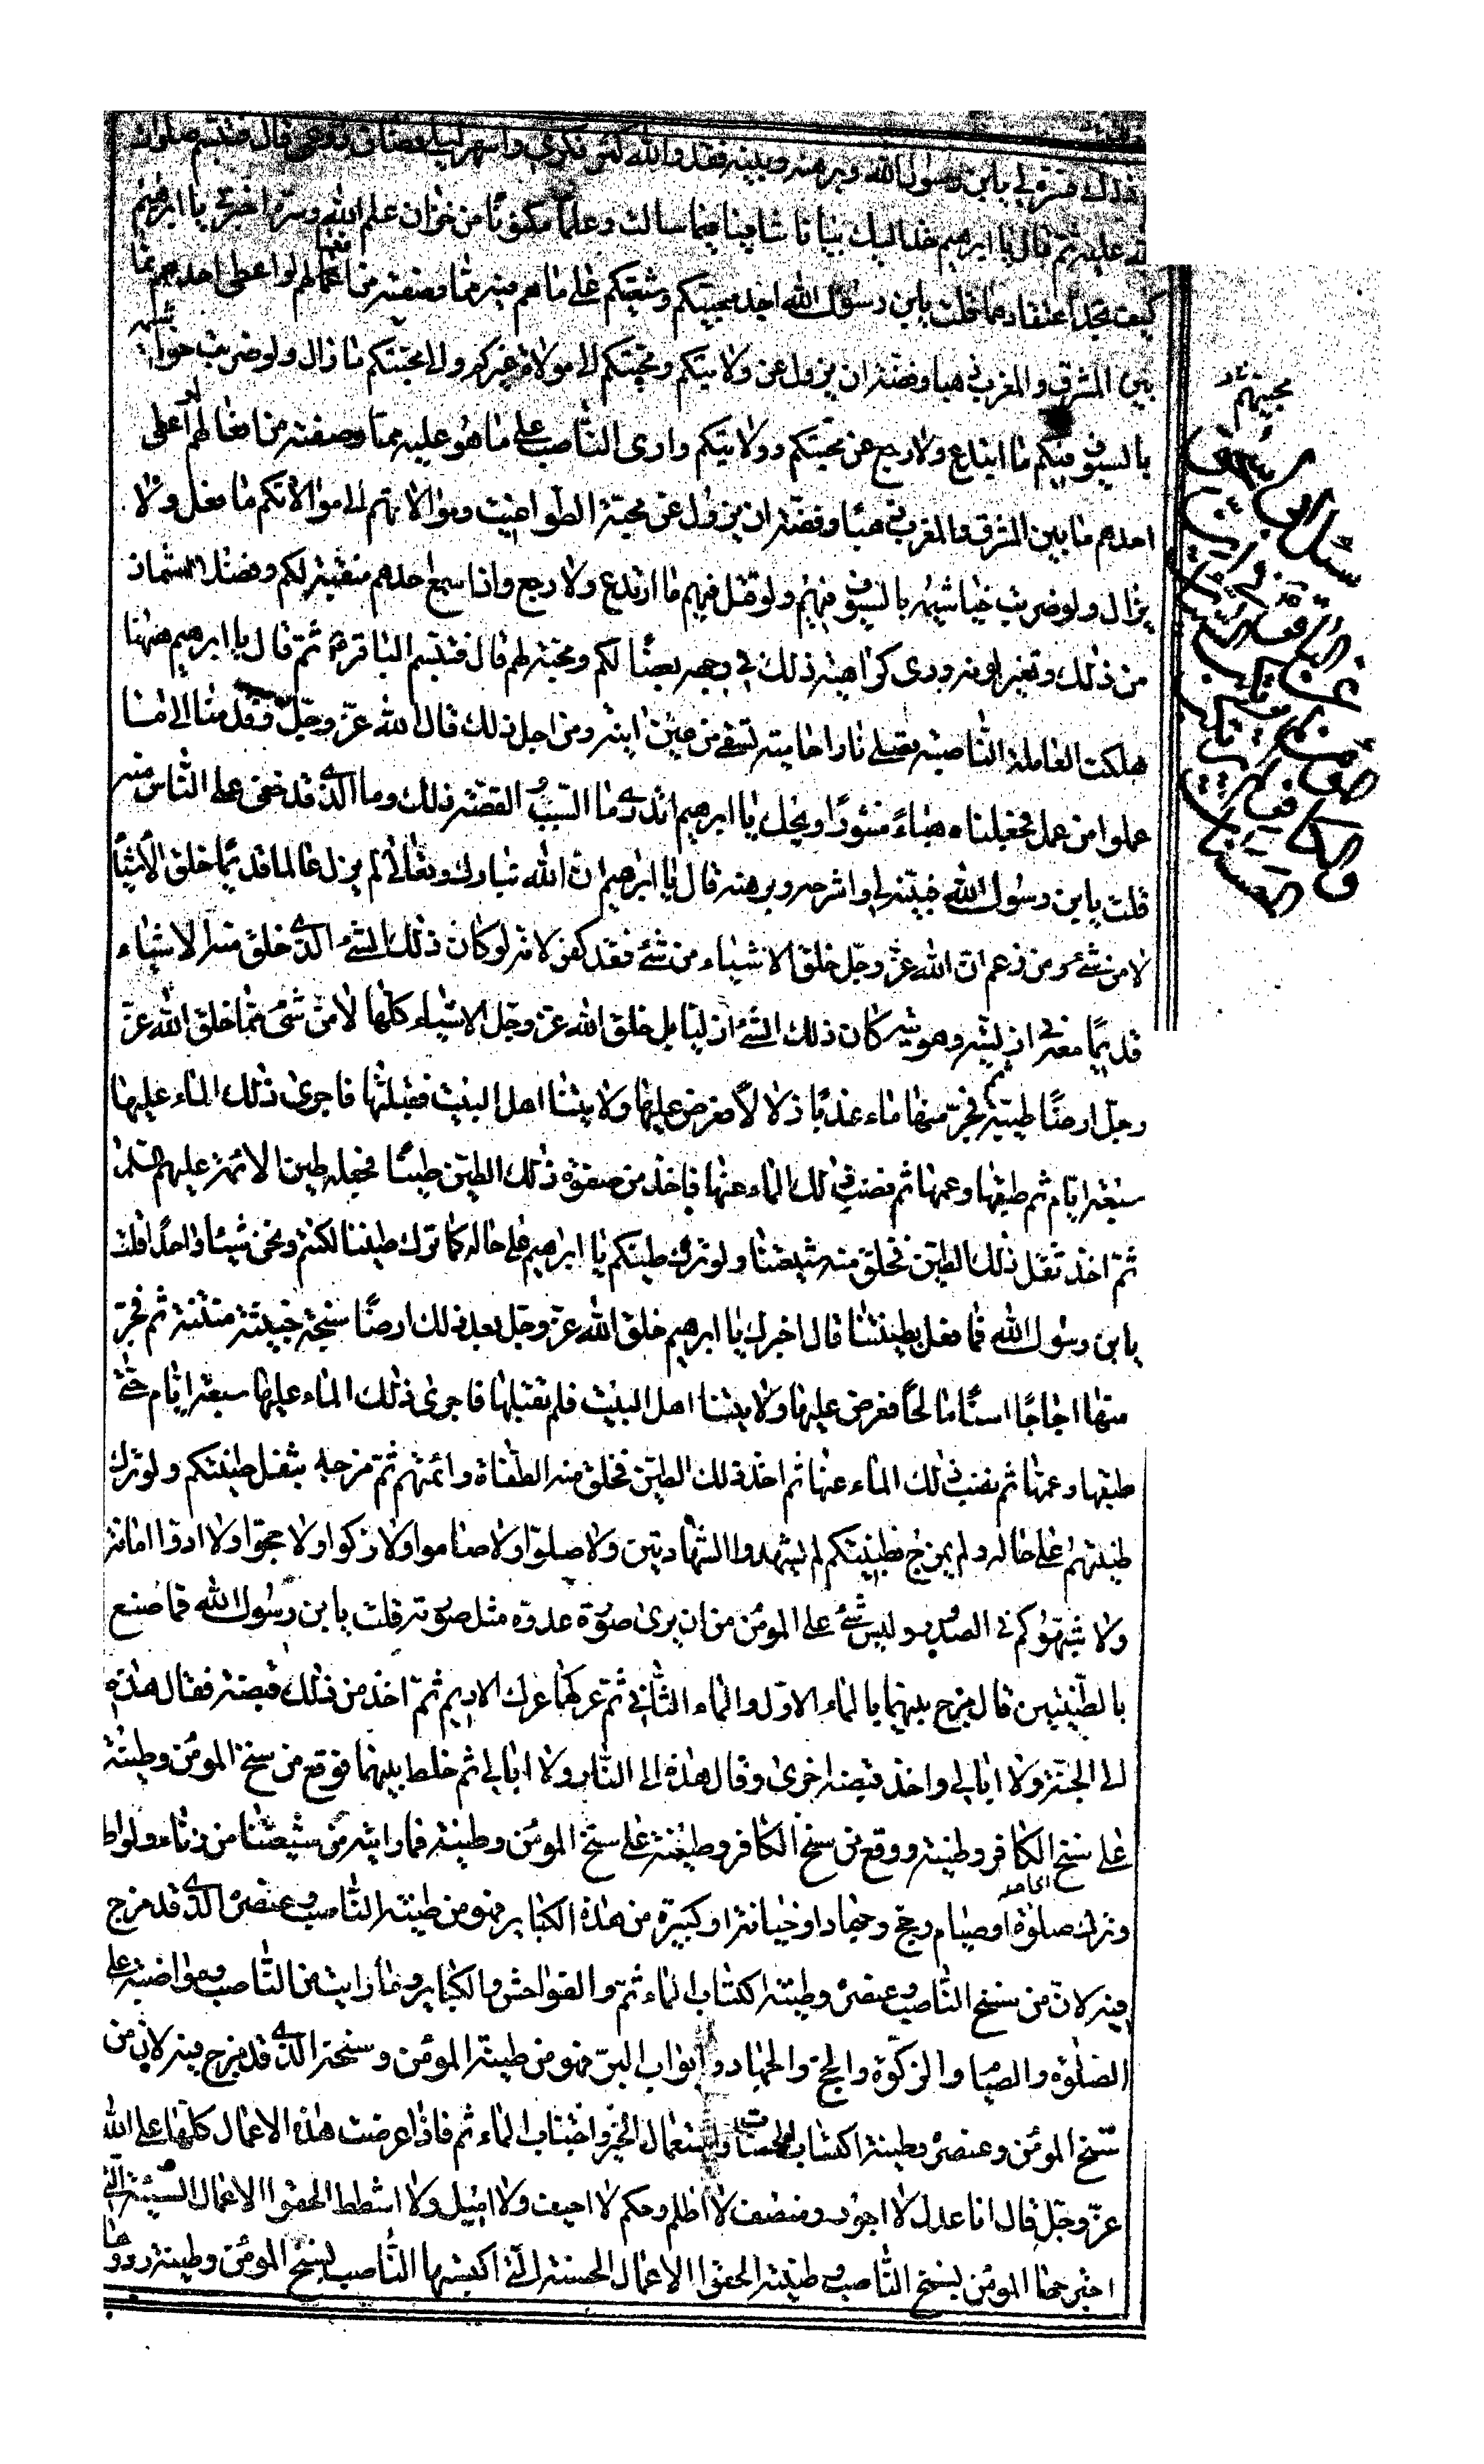 ذلك فسره لي يابن رسول الله وبرهنه وبينه فقد والله كثر فكري واسهر ليلي وضاق ذرعي قال فتبسم صلوات
الله عليه ثم قال يا ابرهيم خذ اليك بيانا شافيا فيما سالت وعلما مكنونا من خزان علم الله وسره اخبرني يا ابرهيم
كيف تجد اعتقادهما قلت يابن رسول الله اجد محبيكم وشيعتكم على ما هم فيه مما وصفته من افعالهم لو اعطى احدهم مما
بين المشرق والمغرب ذهبا وفضة ان يزول عن ولايتكم ومحبتكم الى موالاة غيركم والى محبتكم ما زال ولو ضربت خياشيمه
بالسيوف فيكم ما ارتدع ولا رجع عن محبتكم وولايتكم وارى الناصب على ما هو عليه مما وصفته من افعالهم لو اعطى
احدهم ما بين المشرق والمغرب ذهبا وفضة ان يزول عن محبة الطواغيت وموالاتهم الى موالاتكم ما فعل ولا
يزال ولو ضربت خياشيمه بالسيوف فيهم ولو قتل فيهم ما ارتدع ولا رجع واذا سمع احدهم منقبة لكم وفضلا اشماز
من ذلك وتغير لونه وروى كراهية ذلك في وجهه بغضا لكم ومحبة لهم قال فتبسم الباقر ثم قال يا ابرهيم ههنا
هلكت العاملة الناصبة تصلى نارا حامية تسقى من عين انية ومن اجل ذلك قال الله عز وجل وقدمنا الى ما
عملوا من عمل فجعلناه هباء منثورا ويحك يا ابرهيم اتدري ما السبب والقصة ذلك وما الذي قد خفى على الناس منه
قلت يابن رسول الله فبينه لي واشرحه وبرهنه قال يا ابرهيم ان الله تبارك وتعالى لم يزل عالما قديما خلق الاشياء
لا من شئ ومن زعم ان الله عز وجل خلق الاشياء من شئ فقد كفر لانه لو كان ذلك الشئ الذي خلق منه الاشياء
قديما معه في ازليته وهويته كان ذلك الشئ ازليا بل خلق الله عز وجل الاشياء كلها لا من شئ فمما خلق الله عز
وجل ارضا طيبة ثم فجر منها ماء عذبا زلالا فعرض عليها ولايتنا اهل البيت فقبلتها فاجرى ذلك الماء عليها
سبعة ايام ثم طبقها وعمها ثم نضب ذلك الماء عنها فاخذ من صفوة ذلك الطين طينا فجعله طين الائمة عليهم السلام
ثم اخذ ثفل ذلك الطين فخلق منه شيعتنا ولو ترك طينكم يا ابرهيم على حاله كما ترك طيننا لكنتم ونحن شيئا واحدا قلت
يابن رسول الله فما فعل بطينتنا قال اخبرك يا ابرهيم خلق الله عز وجل بعد ذلك ارضا سبخة خبيثة منتنة ثم فجر
منها اجاجا اسنا مالحا فعرض عليها ولايتنا اهل البيت فلم تقبلها فاجرى ذلك الماء عليها سبعة ايام حتى
طبقها وعمها ثم نضب ذلك الماء عنها ثم اخذ ذلك الطين فخلق منه الطغاة وائمتهم ثم مزجه بثفل طينتكم ولو ترك
طينتهم على حاله ولم يمزج بطينتكم لم يشهدوا الشهادتين ولا صلوا ولا صاموا ولا زكوا ولا حجوا ولا ادوا امانة
ولا شبهوكم في الصور وليس شئ على المومن من ان يرى صورة عدوه مثل صورته قلت يابن رسول الله فما صنع
بالطينتين قال مزج بينهما بالماء الاول والماء الثاني ثم عركهما عرك الاديم ثم اخذ من ذلك قبضة فقال هذه
الى الجنة ولا ابالي واخذ قبضة اخرى وقال هذه الى النار ولا ابالي ثم خلط بينهما فوقع من سنخ المومن وطينته
على سنخ الكافر وطينته ووقع من سنخ الكافر وطينته على سنخ المومن وطينته فما رايته من شيعتنا من زناء ولواط
وترك صلوة او صيام وحج وجهاد او خيانة او كبيرة من هذه الكبائر فهو من طينة الناصب وعنصره الذي قد مزج
فيه لان من سنخ الناصب وعنصره وطينته اكتساب الماثم والفواحش والكبائر وما رايت من الناصب ومواظبته على
الصلوة والصيام والزكوة والحج والجهاد وابواب البر فهو من طينة المومن وسنخه الذي قد مزج فيه لان من
سنخ المومن وعنصره وطينته اكتساب الحسنات واستعمال الخير واجتناب الماثم فاذا عرضت هذه الاعمال كلها على الله
عز وجل قال انا عدل لا اجور ومنصف لا اظلم وحكم لا احيف ولا اميل ولا اشطط الحقوا الاعمال السيئة التي
اجترحها المومن بسنخ الناصب وطينته الحقوا الاعمال الحسنة التي اكتسبها الناصب بسنخ المومن وطينته ردوها